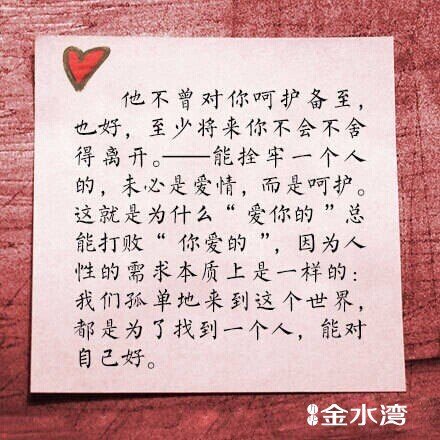 他不曾对你呵护备至，
也好，至少将来你不会不舍
得离开。——能拴牢一个人
的，未必是爱情，而是呵护。
这就是为什么“爱你的”总
能打败“你爱的”，因为人
性的需求本质上是一样的：
我们孤单地来到这个世界，
都是为了找到一个人，能对
自己好。
金水湾